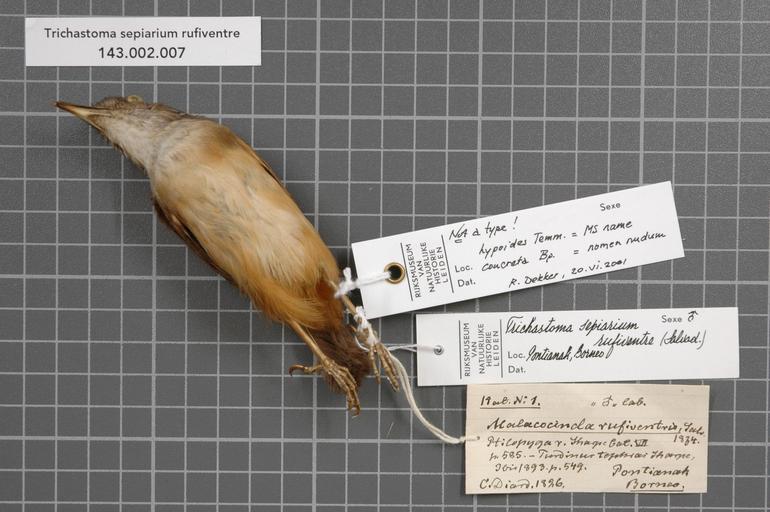 Trichastoma sepiarium rufiventre
143.002.007
Sexe
Not a type!
hypoides Temm. = MS name
Loc. concreta Bp. = nomen nudum
Dat. R. Dekker, 20.vi.2001
RIJKSMUSEUM
VAN
NATUURLIJKE
HISTORIE
LEIDEN
Trichastoma sepiarium Sexe ♂
rufiventre (Salvad.)
Loc. Pontianak, Borneo
Dat.
RIJKSMUSEUM
VAN
NATUURLIJKE
HISTORIE
LEIDEN
Cat. N: 1.
Malacocincla rufiventris, Salv.
1874.
Ptilopyga r. Sharpe Cat. VII
p. 585. – Turdinus Sharpe,
Ibis 1893. p. 549. Pontianak
C. Diard. 1826. Borneo.